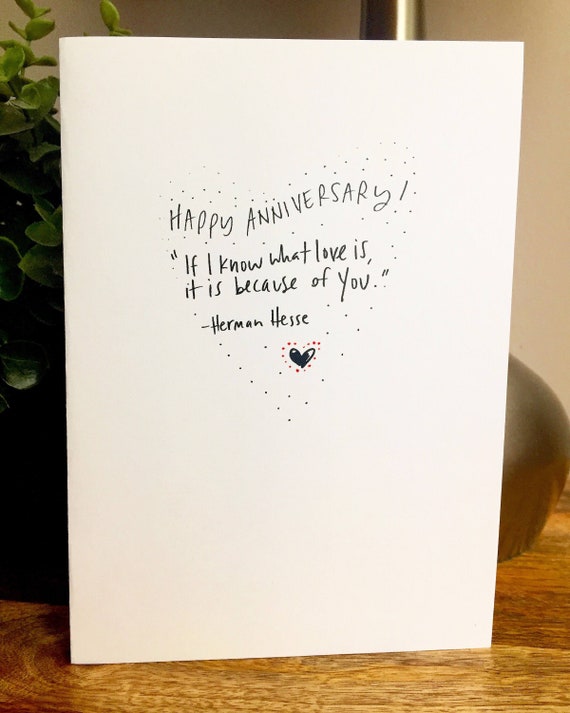 HAPPY ANNIVERSARY!
"If I know what love is,
it is because of you."
-Herman Hesse